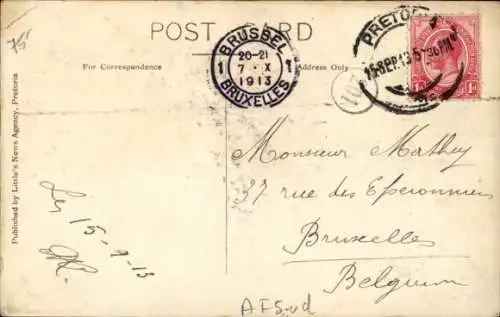 POST CARD
For Correspondence
Address Only
BRUSSEL
1 20-21 1
7 X
1913
BRUXELLES
PRETORIA
Published by Little's News Agency, Pretoria
Monsieur Mathey
37 rue des Eperonniers
Bruxelles
Belgium
Les 15-9-13
AFSud